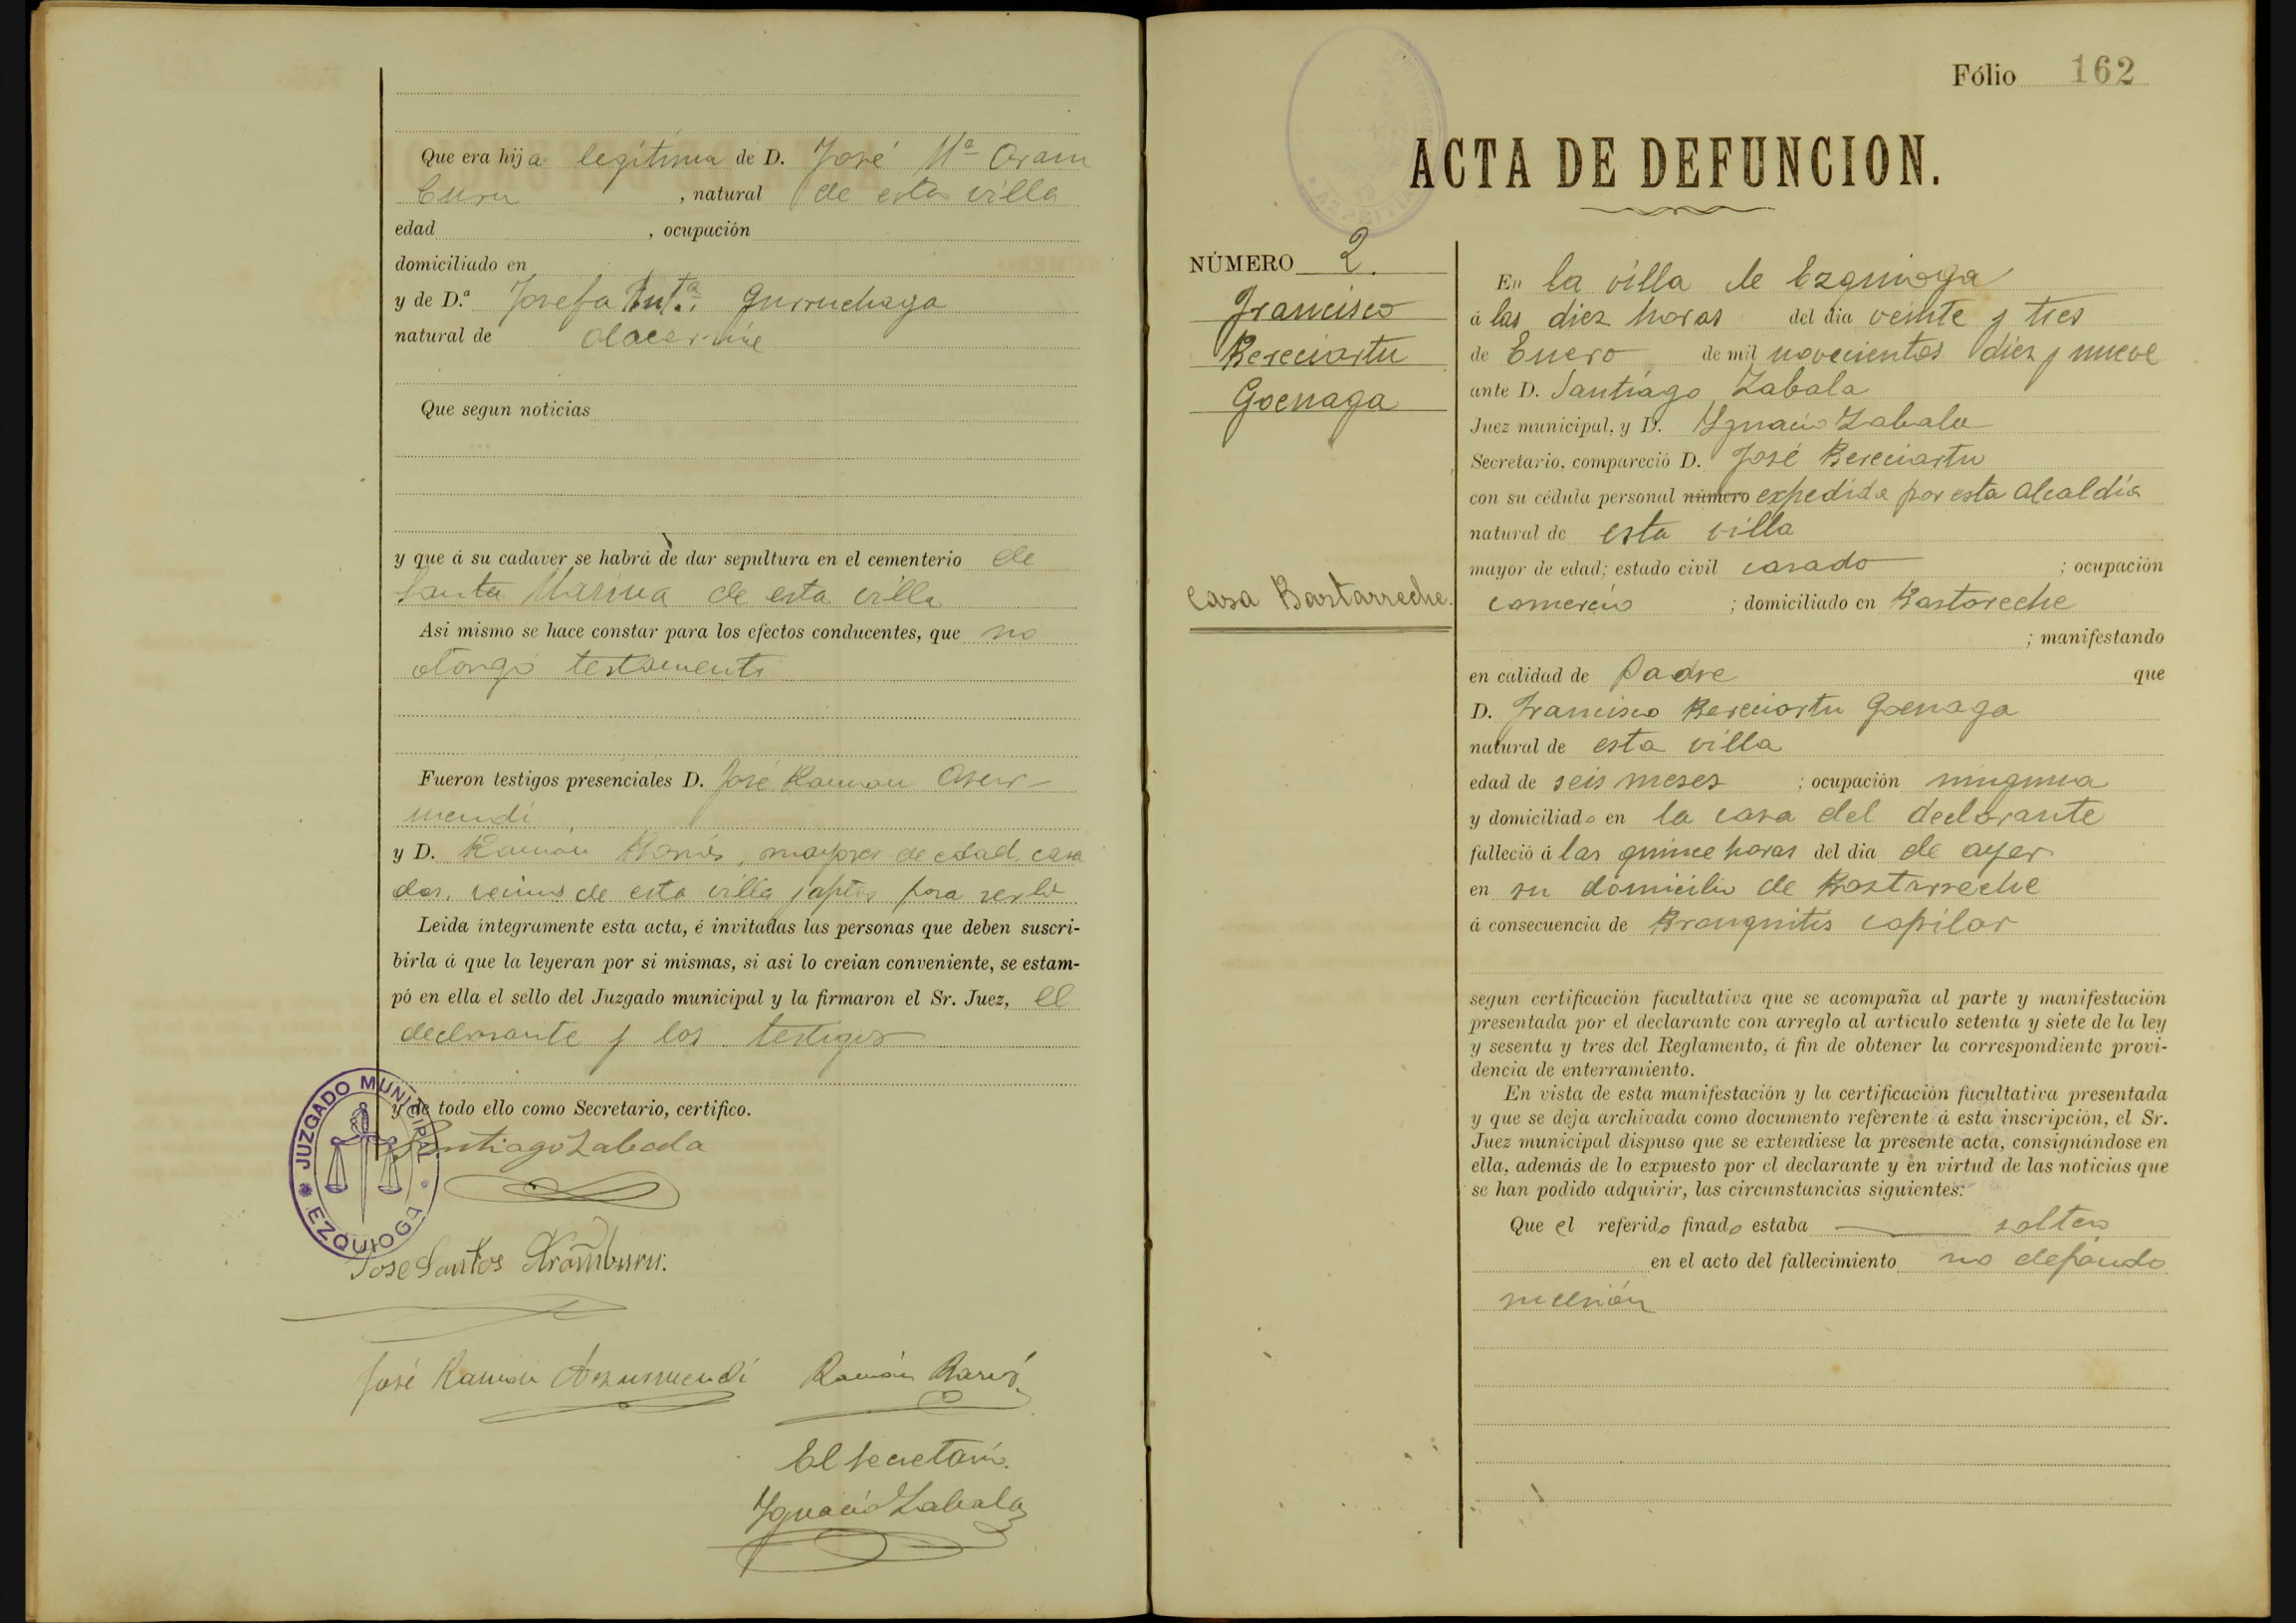 Que era hija legítima de D. José Mª Aram
buru , natural de esta villa
edad , ocupación
domiciliado en
y de D.ª Josefa Antª. Gurruchaga
natural de
Que segun noticias
y que á su cadaver se habrá de dar sepultura en el cementerio de
Santa Marina de esta villa
Asi mismo se hace constar para los efectos conducentes, que no
otorgó testamento
Fueron testigos presenciales D. José Ramon
mendi
y D. Ramón , mayores de edad, casa
dos, vecinos de esta villa y aptos para serlo
Leida íntegramente esta acta, é invitadas las personas que deben suscri-
birla á que la leyeran por si mismas, si asi lo creian conveniente, se estam-
pó en ella el sello del Juzgado municipal y la firmaron el Sr. Juez, el
declarante y los testigos
y de todo ello como Secretario, certifico.
JUZGADO MUNICIPAL
EZQUIOGA
Santiago Zabala
Jose Santos Aramburu.
José Ramón Ramón
El Secretario.
Ignacio Zabala
Fólio 162
ACTA DE DEFUNCION.
AZPEITIA
NÚMERO 2.
Francisco
Bereciartu
Goenaga
Casa Bastarreche.
En la villa de Ezquioga
á las diez horas del dia veinte y tres
de Enero de mil novecientos diez y nueve
ante D. Santiago Zabala
Juez municipal, y D. Ignacio Zabala
Secretario, compareció D. José Bereciartu
con su cédula personal número expedida por esta Alcaldía
natural de esta villa
mayor de edad; estado civil casado ; ocupación
comercio ; domiciliado en Bastareche
; manifestando
en calidad de Padre que
D. Francisco Bereciartu Goenaga
natural de esta villa
edad de seis meses ; ocupación ninguna
y domiciliado en la casa del declarante
falleció á las quince horas del dia de ayer
en su domicilio de Bastarreche
á consecuencia de Bronquitis capilar
segun certificación facultativa que se acompaña al parte y manifestación
presentada por el declarante con arreglo al artículo setenta y siete de la ley
y sesenta y tres del Reglamento, á fin de obtener la correspondiente provi-
dencia de enterramiento.
En vista de esta manifestación y la certificación facultativa presentada
y que se deja archivada como documento referente á esta inscripción, el Sr.
Juez municipal dispuso que se extendiese la presente acta, consignándose en
ella, además de lo expuesto por el declarante y en virtud de las noticias que
se han podido adquirir, las circunstancias siguientes:
Que el referido finado estaba soltero
en el acto del fallecimiento no dejando
sucesión